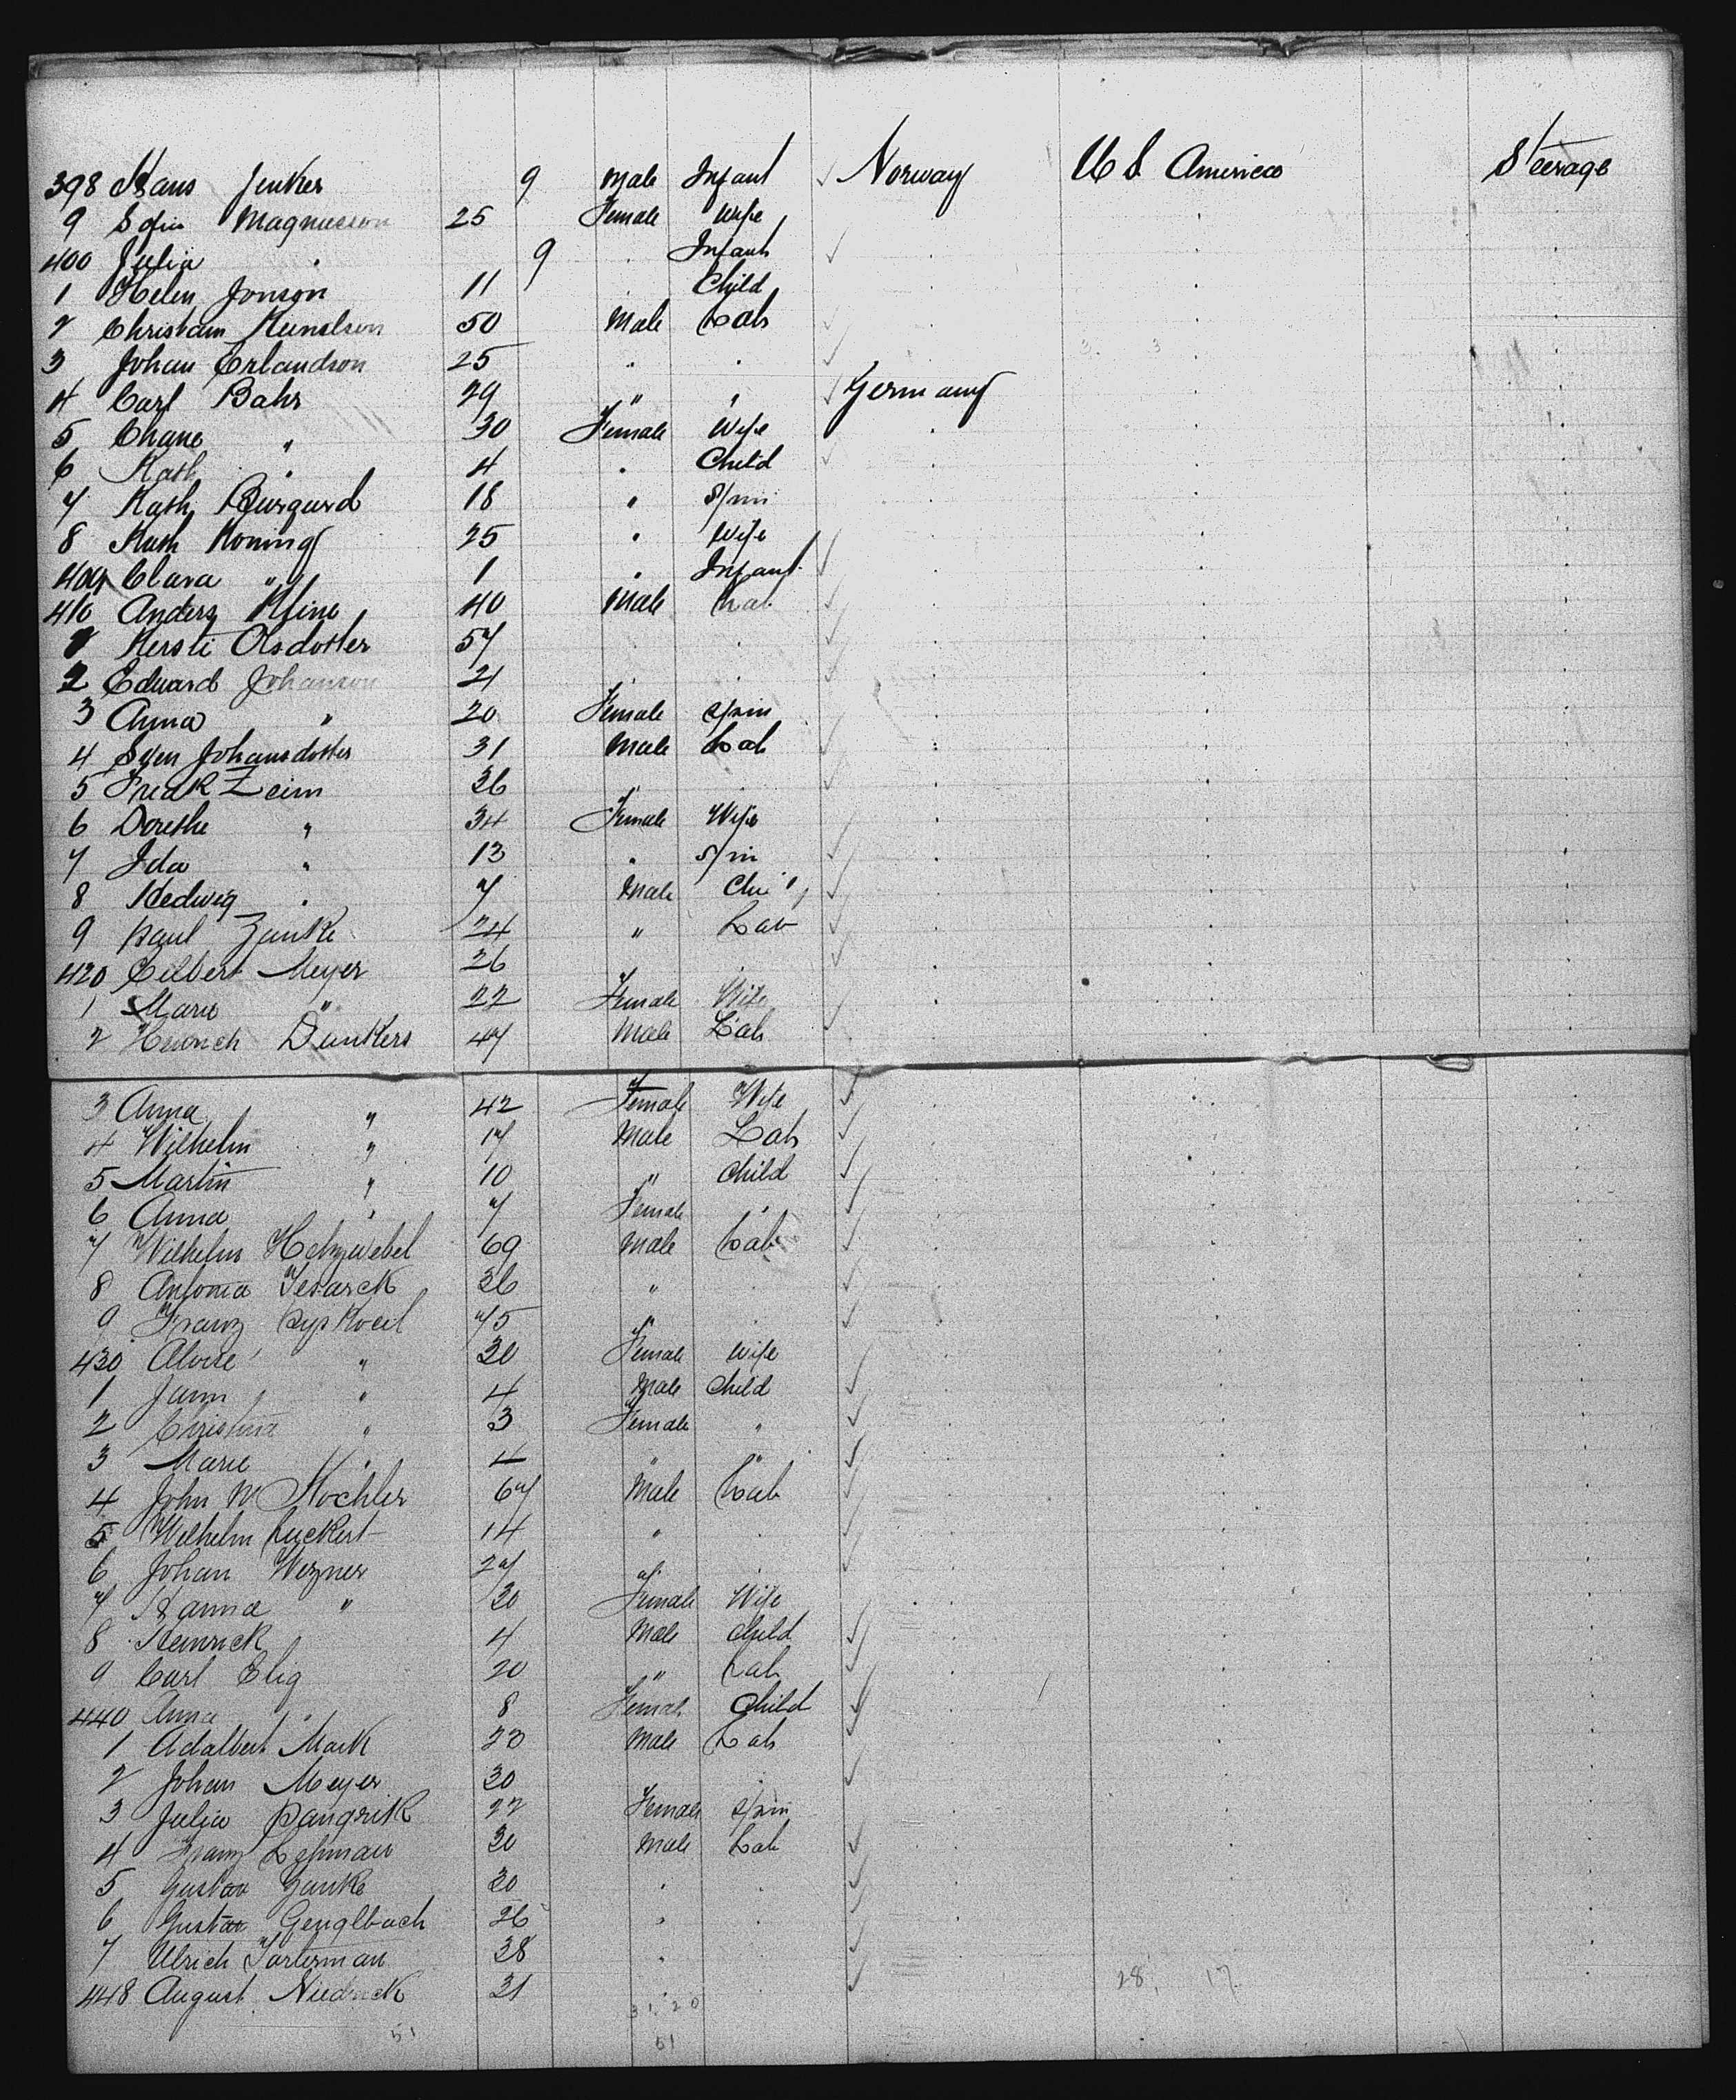 398 Hans Junker 9 Male Infant Norway U S America Steerage
9 Sofia Magnusson 25 Female Wife
400 Julia " 9 " Infant
1 Helen Jonson 11 " Child
2 50 Male Lab
3 Johan Erlandson 25 " "
4 Carl Bahr 29 " " Germany
5 " 30 Female Wife
6 Kath " 4 " Child
7 Kath Burgurd 18 " Spin
8 Kath Koning 25 " Wife
409 Clara " 1 " Infant
410 Anders Kline 40 Male Lab
1 Kersti Olsdotter 57 " "
2 Edward Johanson 21 " "
3 Anna " 20 Female Spin
4 Sven Johansdotter 31 Male Lab
5 Zeim 26 " "
6 Dorethe " 34 Female Wife
7 Ida " 13 " Spin
8 Hedwig " 7 Male
9 Paul Zanke 24 " Lab
420 Meyer 26 " "
1 Marie " 22 Female Wife
2 Dunkers 47 Male Lab
3 Anna " 42 Female Wife
4 Wilhelm " 17 Male Lab
5 Martin " 10 " Child
6 Anna " 7 Female "
7 Wilhelm 69 Male Lab
8 Antonia 26 " "
9 Franz 45 " "
430 " 30 Female Wife
1 " 4 Male Child
2 Christina " 3 Female "
3 Marie " 4 " "
4 John M Kochler 67 Male Lab
5 Wilhelm Luckert 14 " "
6 Johan Wezner 27 " "
7 Hanna " 30 Female Wife
8 Heinrick 4 Male Child
9 Carl Elig 20 " Lab
440 Anna " 8 Female Child
1 Adalbert Mark 23 Male Lab
2 Johan Meyer 30 "
3 Julia Pangrik 22 Female Spin
4 Franz Lehman 30 Male Lab
5 Gustav Zanke 30 " "
6 Gustav Genglbach 26 " "
7 Ulrich 38 " "
448 August 31 " 28 17
51 31 20
51